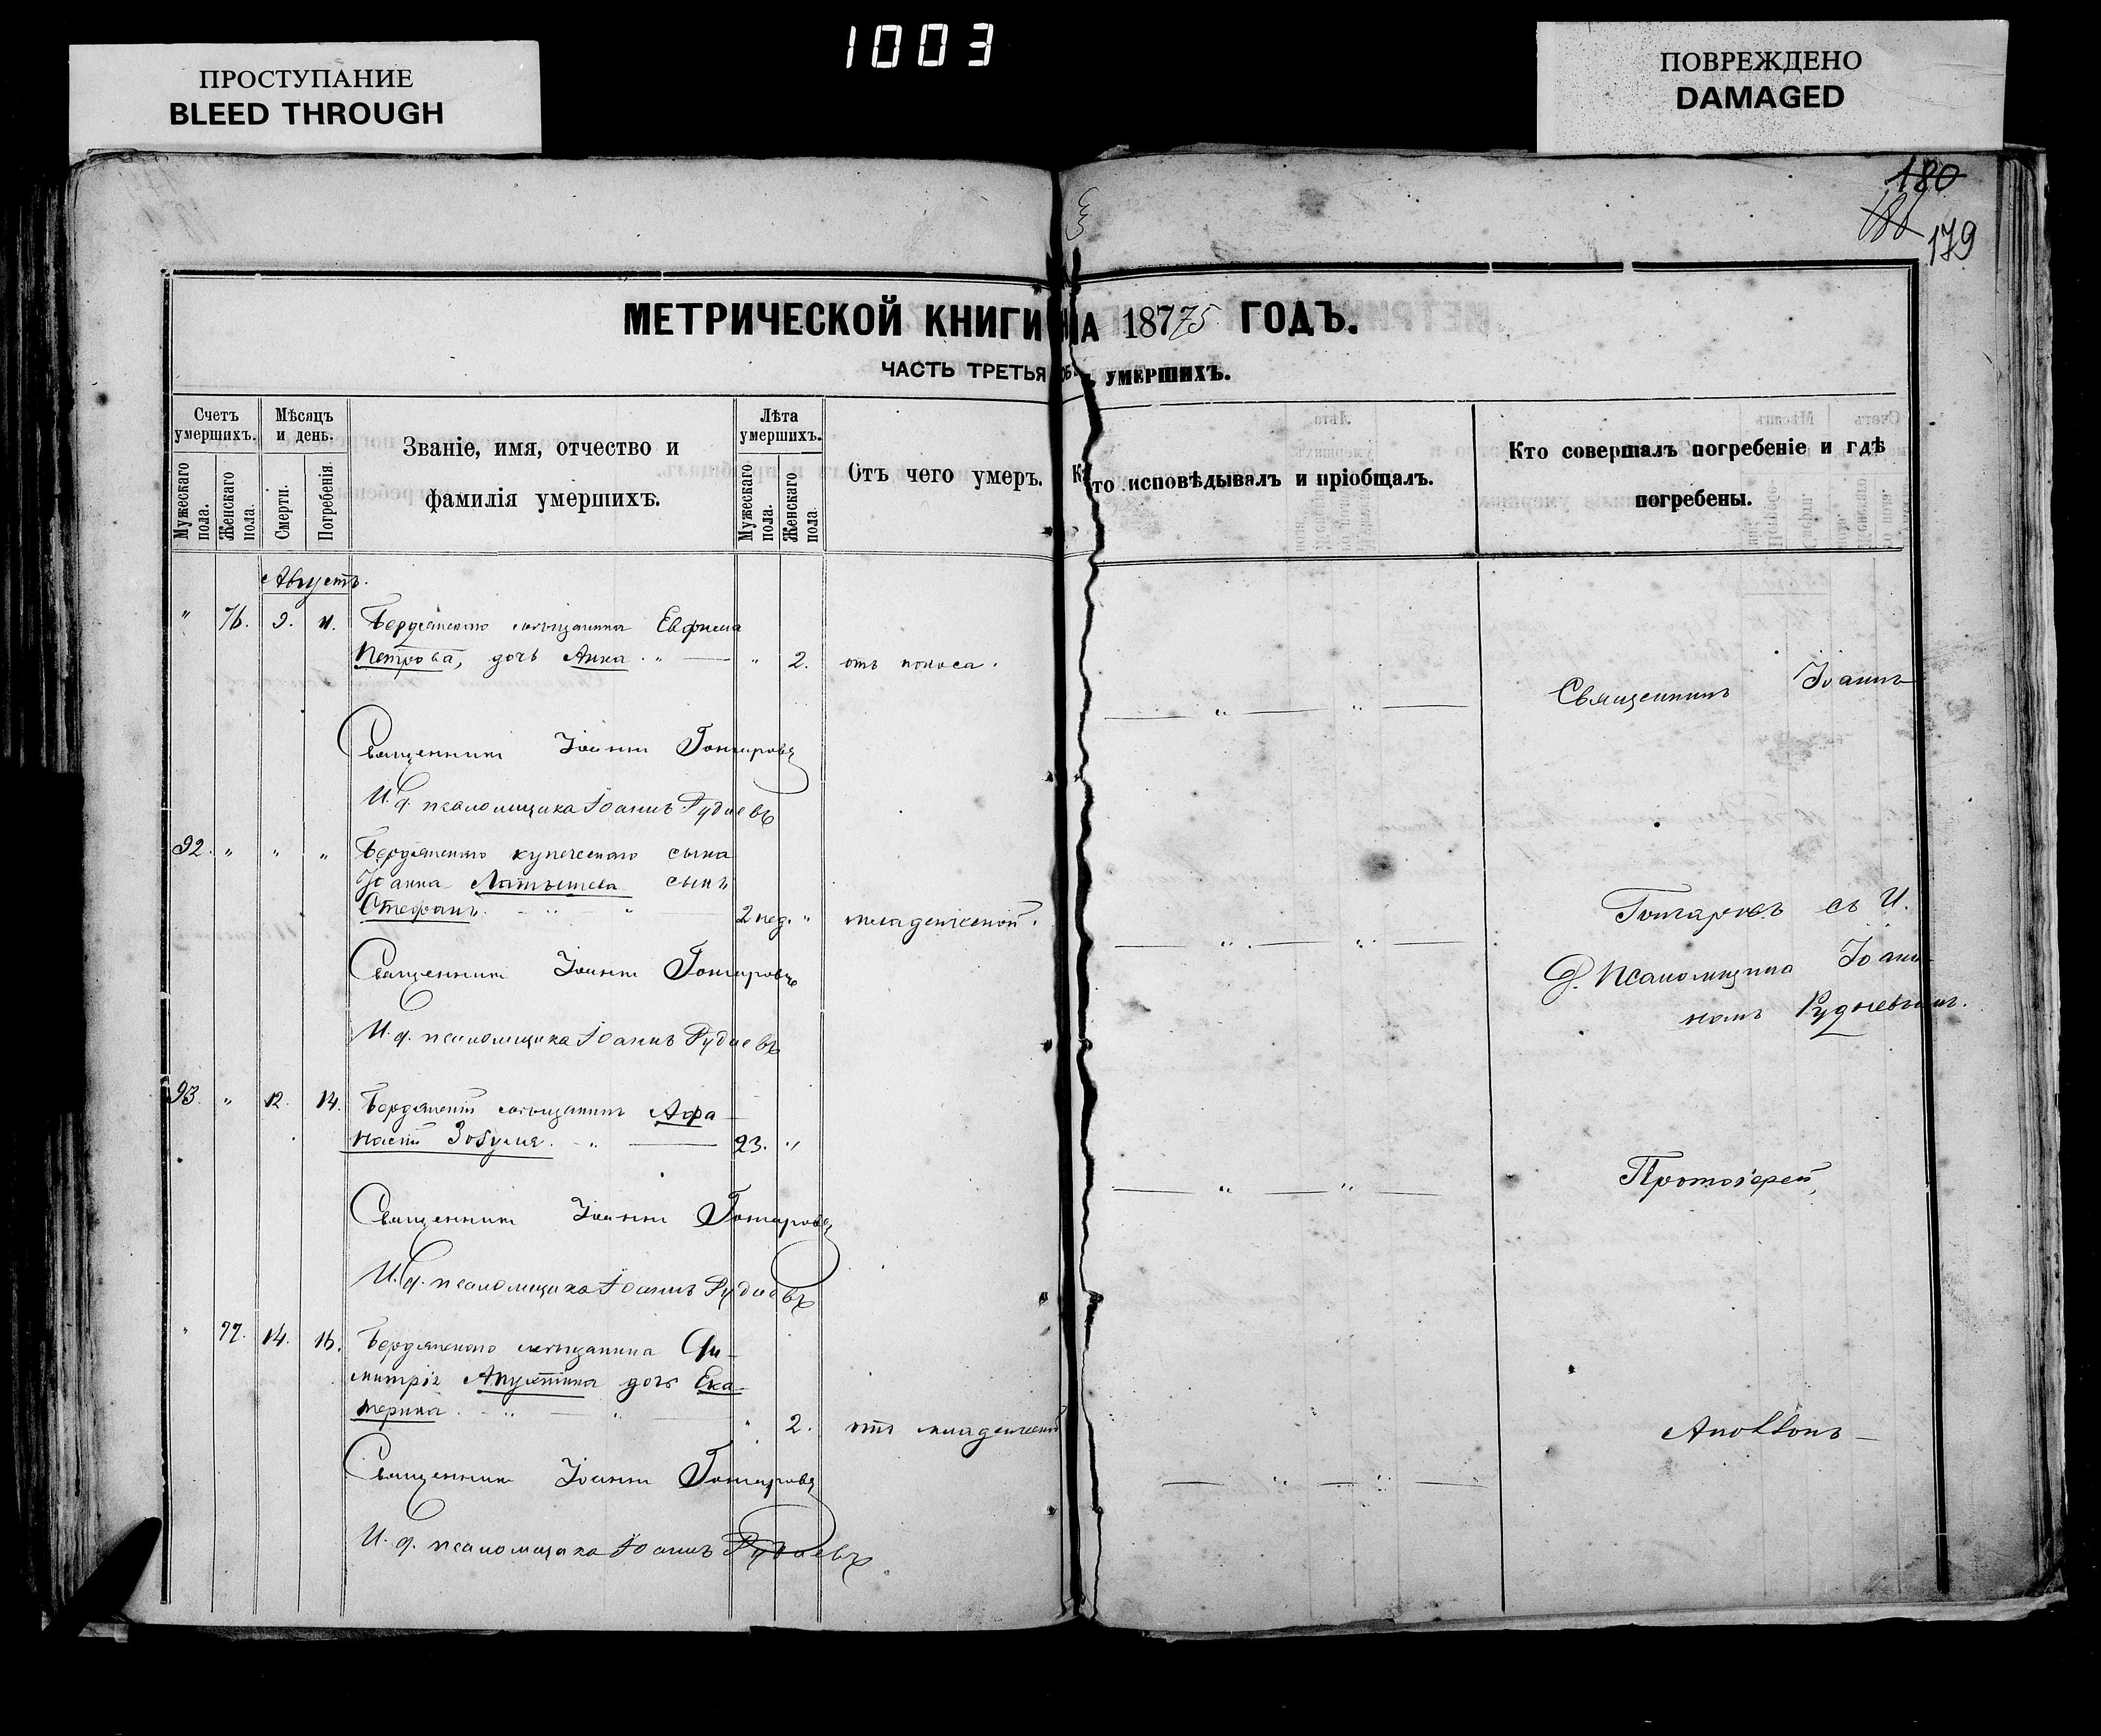 1003
ПРОСТУПАНИЕ
BLEED THROUGH
ПОВРЕЖДЕНО
DAMAGED
180
179
МЕТРИЧЕСКОЙ КНИГИ НА 1875 ГОДЪ.
ЧАСТЬ ТРЕТЬЯ ОБЪ УМЕРШИХЪ.
Счетъ умершихъ.
Мужескаго пола.
Женскаго пола.
Мѣсяцъ и день.
Смерти.
Погребенія.
Званіе, имя, отчество и
фамилія умершихъ.
Лѣта умершихъ.
Мужескаго пола.
Женскаго пола.
Отъ чего умеръ.
Кто исповѣдывалъ и пріобщалъ.
Кто совершалъ погребеніе и гдѣ
погребены.
Августъ.
" 76. 9. 11. Бердянскаго мѣщанина Евфима
Петрова, дочь Анна. " — " 2. отъ поноса.
— " — " —
Священникъ Іоаннъ
Священникъ Іоаннъ Гончаровъ
И. д. псаломщика Іоаннъ Рудневъ
92. " " " Бердянскаго купеческаго сына
Іоанна Латышева сынъ
Стефанъ. — " — " — 2 нед. " младенческой.
— " — " —
Гончаровъ съ И.
д. Псаломщика Іоан-
номъ Рудневымъ.
Священникъ Іоаннъ Гончаровъ
И. д. псаломщика Іоаннъ Рудневъ
93. " 12. 14. Бердянскій мѣщанинъ Афа-
насій Зобуля. " — 23. "
— " — " —
Протоіерей
Священникъ Іоаннъ Гончаровъ
И. д. псаломщика Іоаннъ Рудневъ
" 77. 14. 16. Бердянскаго мѣщанина Ди-
митрія Апухтина дочь Ека-
терина. — " — " — " 2. отъ младенческой
— " — " —
Аполлонъ —
Священникъ Іоаннъ Гончаровъ
И. д. псаломщика Іоаннъ Рудневъ